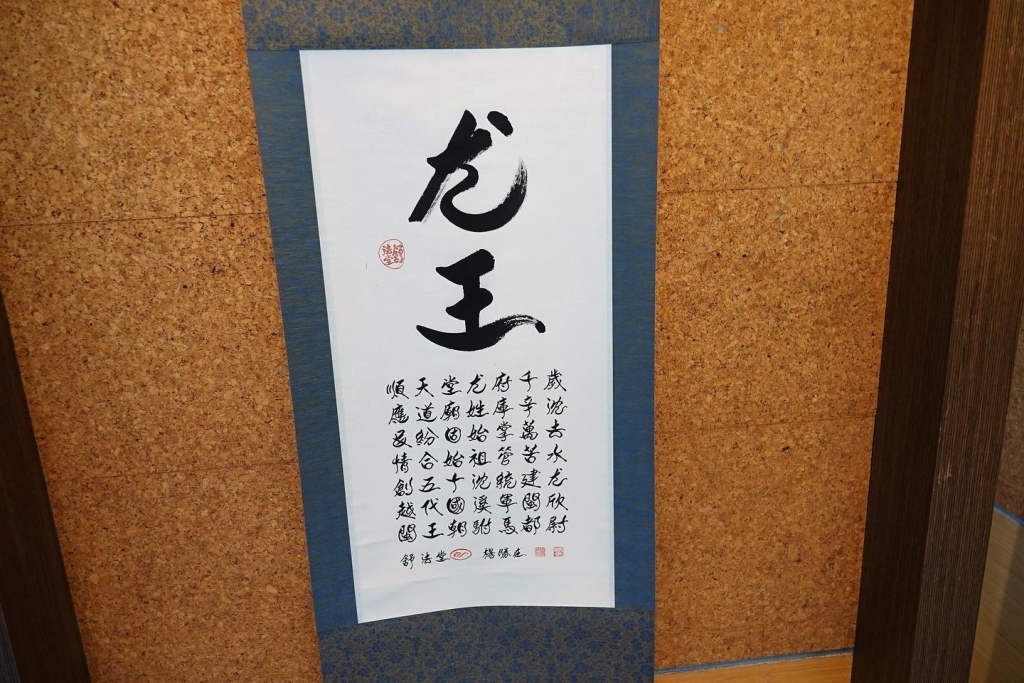 尤王
順應民情創越閩
天道紛合五代王
堂廟固始十國朝
尤姓始祖沈溪駙
府庫掌管統軍馬
千辛萬苦建閩都
歲沈去水尤欣尉
舒法堂 楊勝廷